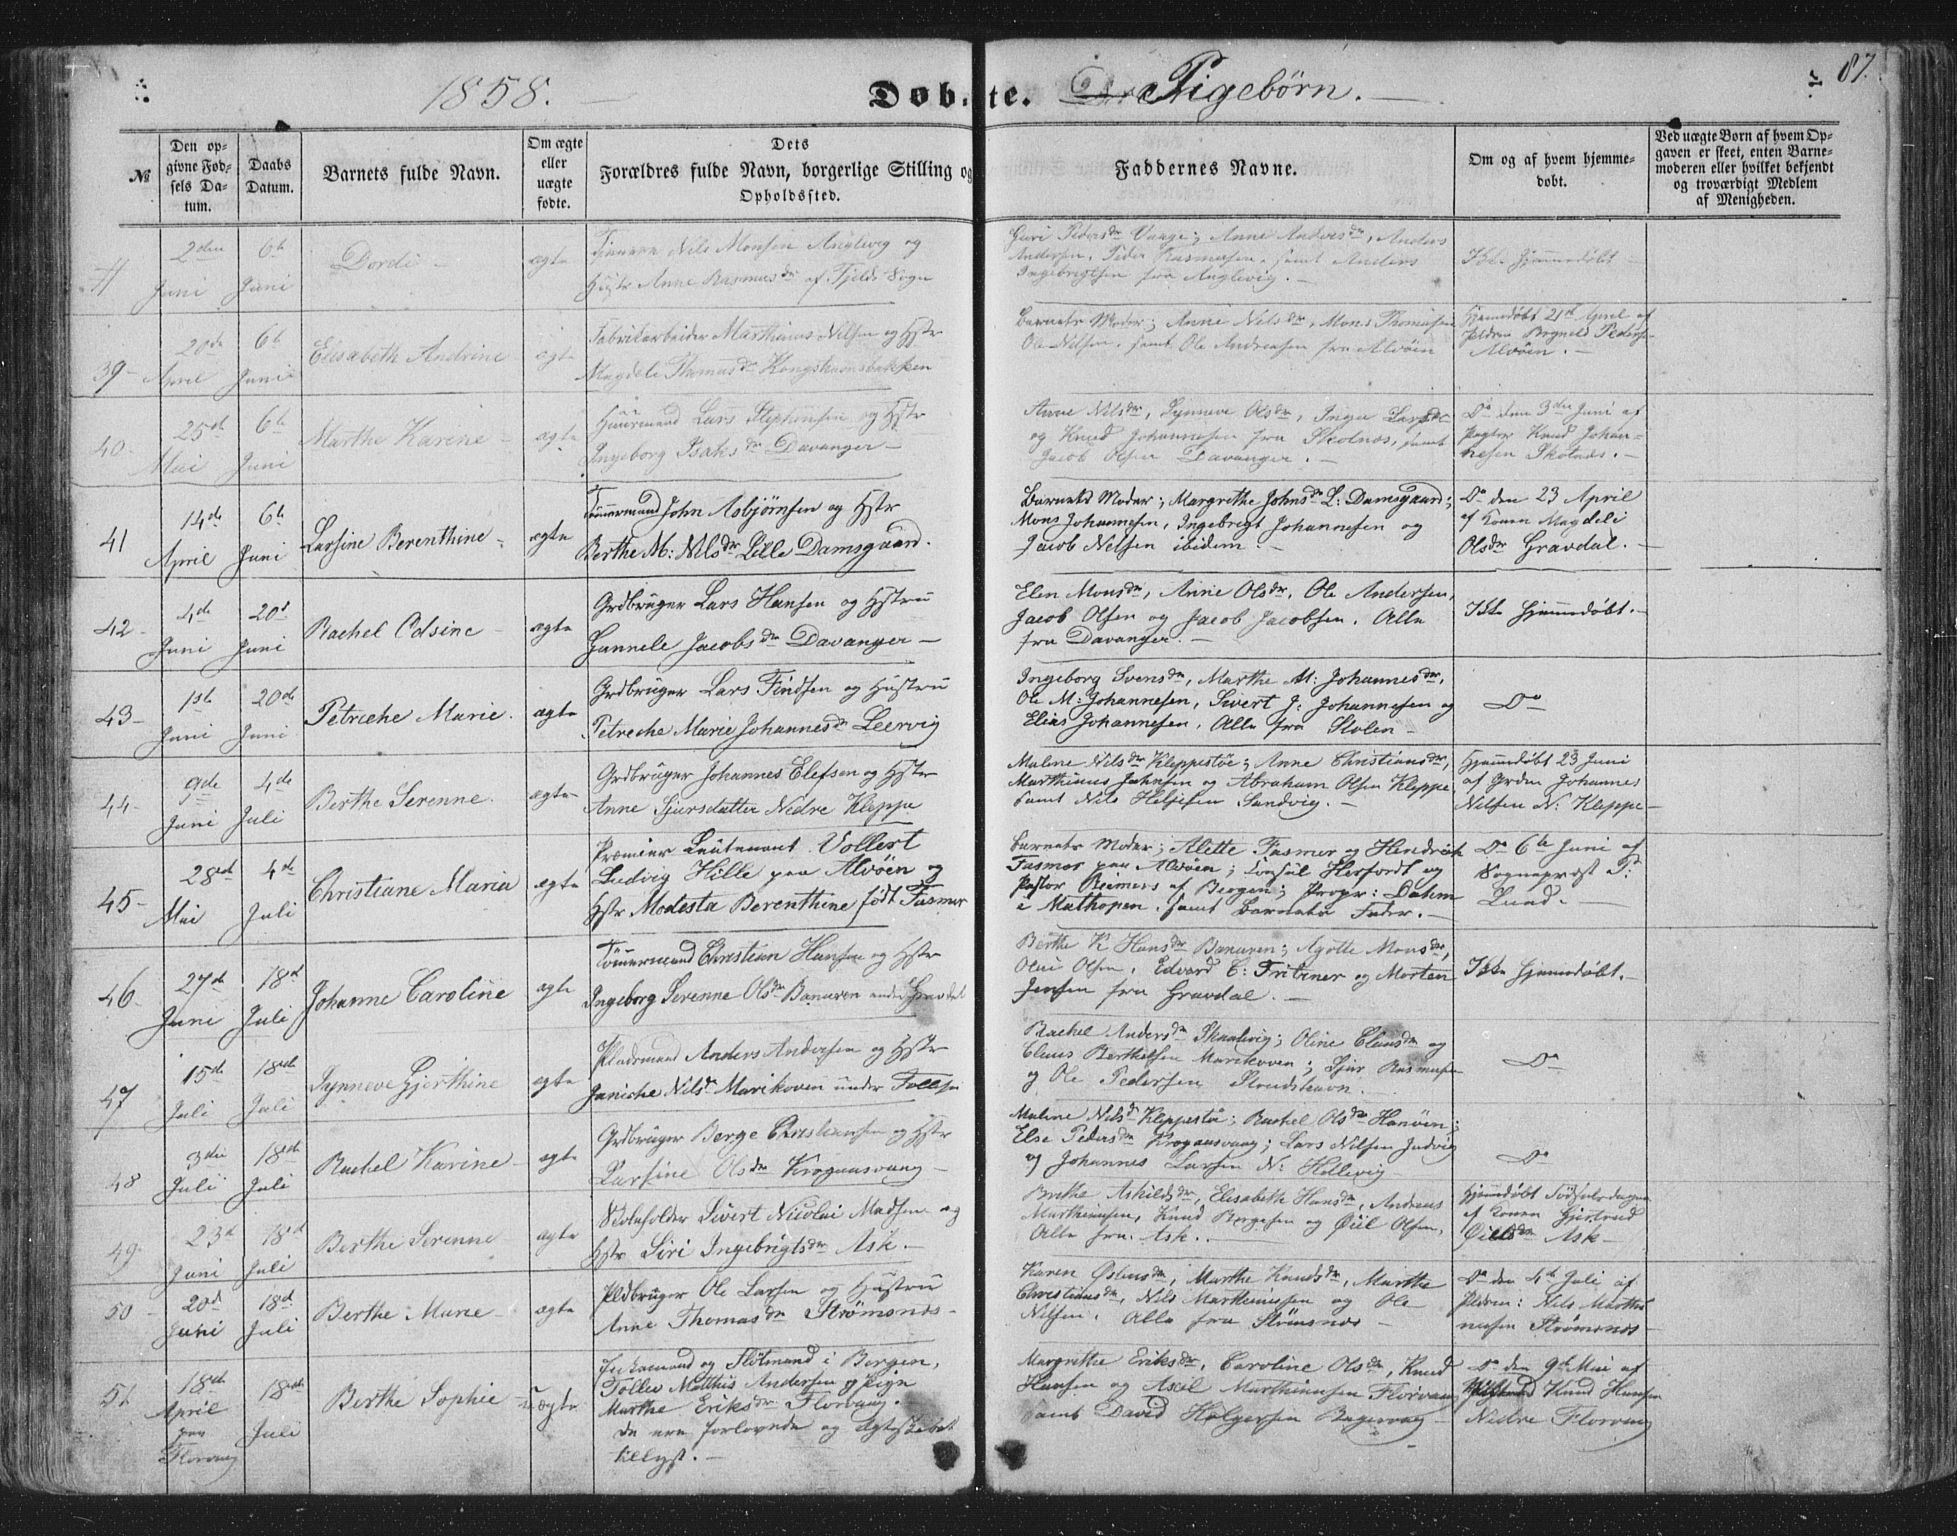 1858. — Døbte. Pigebørn. — 87.
№ | Den opgivne Fødsels Datum. | Daabs Datum. | Barnets fulde Navn. | Om ægte eller uægte fødte. | Dets Forældres fulde Navn, borgerlige Stilling og Opholdssted. | Faddernes Navne. | Om og af hvem hjemmedobt. | Ved uægte Børn af hvem Opgaven er skeet, enten Barnemoderen eller hvilket bekjendt og troværdigt Medlem af Menigheden.
2den Juni | 6te Juni | Dordi — | ægte
Nils Monsen og
Hustr Anne Rasmusdr af Fjelds Sogn
Guri Pedersdr Vaage; Anne Andersdr, Anders
Andersen, Peder Rasmusen, samt Anders
Ingebrigtsen fra
Ikke Hjemmedøbt —
39 — | 20de April | 6te Juni | Elisabeth Andrine | ægte
Fabrikarbeider Marthinus Nilsen og Hstr
Magdele Thomasdr Kongshavnsbakken
Barnets Moder; Anne Nilsdr, Mons Thomasen
Ole Nilsen, samt Ole Andreasen fra Alvøen
Hjemmedøbt 21de April af
Alvøen. —
40 — | 25de Mai | 6te Juni | Marthe Karine — | ægte
Huusmand Lars Stephensen og Hstr
Ingeborg Isaksdr Davanger —
Anne Nilsdr, Synneve Olsdr, Inger Larsdr
og Knud Johannesen fra Skolnes, samt
Jacob Olsen Davanger. —
Do den 3die Juni af
Knud Johan-
nesen Skolnes. —
41 | 14de April | 6te Juni | Larsine Berenthine — | ægte
Tømmermand John Asbjørnsen og Hstr
Berthe M: Nilsdr Lille Damsgaard.
Barnets Moder; Margrethe Johnsdr L: Damsgaard;
Mons Johannesen, Ingebrigt Johannesen og
Jacob Nilsen ibidem. —
Do den 23 April
af Konen Magdeli
Olsdr Gravdal. —
42 — | 4de Juni | 20de Juni | Rachel Odsine — | ægte
Grdbruger Lars Hansen og Hstru
Gunnele Jacobsdr Davanger —
Elen Monsdr, Anne Olsdr, Ole Andersen,
Jacob Olsen og Jacob Jacobsen. Alle
fra Davanger. —
Ikke Hjemmedøbt. —
43 — | 1ste Juni | 20de Juni | Petreche Marie. | ægte
Grdbruger Lars Findsen og Hustru
Petreche Marie Johannesdr Leervig
Ingeborg Svensdr, Marthe M: Johannesdr,
Ole M: Johannesen, Sivert J: Johannesen og
Elias Johannesen. Alle fra Stolen —
Do
44 — | 9de Juni | 4de Juli | Berthe Serenne. | ægte —
Grdbruger Johannes Elefsen og Hstr
Anne Sjursdatter Nedre Kleppe
Malene Nilsdr Kleppestøe; Anne Christiansdr,
Marthinus Johnsen og Abraham Olsen Kleppe,
samt Nils Heljesen Sandvig. —
Hjemmedøbt 23 Juni
af Johannes
Nilsen N: Kleppe —
45 — | 28de Mai | 4de Juli | Christiane Maria | ægte
Premier Leutenant Vollert
Ludvig Hille paa Alvøen og
Hstr Modesta Berenthine født Fasmer
Barnets Moder; Alette Fasmer og Hendrich
Fasmer paa Alvøen; Consul Herfordt og
Pastor Reimers af Bergen; Propr: Dahm
i Mathopen, samt Barnets Fader. —
Do 6te Juni af
Sognepræst P:
Lund. —
46 — | 27de Juni | 18de Juli | Johanne Caroline | ægte
Tømmermand Christian Hansen og Hstr
Ingeborg Serenne Olsdr Banuren under Gravdal
Berthe K Hansdr Banuren; Agotte Monsdr,
Olai Olsen, Edvard C: Fribiner og Morten
Jensen fra Gravdal. —
Ikke Hjemmedøbt. —
47 | 15de Juli | 18de Juli | Synneve Gjerthine | ægte
Pladsmand Anders Andersen og Hstr
Janiche Nilsdr Marikoven under
Rachel Andersdr Skaalevig; Oline Clausdr og
Claus Berthelsen Marikoven; Sjur Rasmusen
og Ole Pedersen
Do
48 | 3die Juli | 18de Juli | Rachel Karine — | ægte
Grdbruger Berge Christiansen og Hstr
Larsine Olsdr Krogaasvaag —
Malene Nilsdr Kleppestø; Rachel Olsdr Hanøen;
Else Pedersdr Krogaasvaag; Lars Nilsen
og Johannes Larsen N: Hellevig —
Do
49 — | 23de Juni | 18de Juli | Berthe Serenne | ægte
Skoleholder Sivert Nicolai Madsen og
Hstr Siri Ingebrigtsdr Ask. —
Brithe Askildsdr, Elisabeth Hansdr, Andreas
Marthinusen, Knud Bergesen og Øiil Olsen,
Alle fra Ask. —
Hjemmedøbt Fødselsdagen
af Konen Gjertrud
Øiilsdr Ask —
50 — | 20de Juni | 18de Juli | Berthe Marie — | ægte
Pldbruger Ole Larsen og Hustru
Anne Thomasdr Strømsnes —
Karen Marthe Knudsdr, Marthe
Christiansdr, Nils Marthinussen og Ole
Nilsen. Alle fra Strømsnes —
Do den 4de Juli af
Nils Marthi-
nussen Strømsnes —
51 | 18de April paa Florvaag | 18de Juli | Berthe Sophie — | uægte
og i Bergen,
Tollev Matthis Andersen og Pigen
Marthe Eriksdr Florvaag.
De ere forlovede og
tillyst. —
Margrethe Eriksdr, Caroline Olsdr, Knud
Hansen og Axel Marthinussen Florvaag
samt David Holgersen —
Do den 9de Mai af
Knud Hansen
Nedre Florvaag